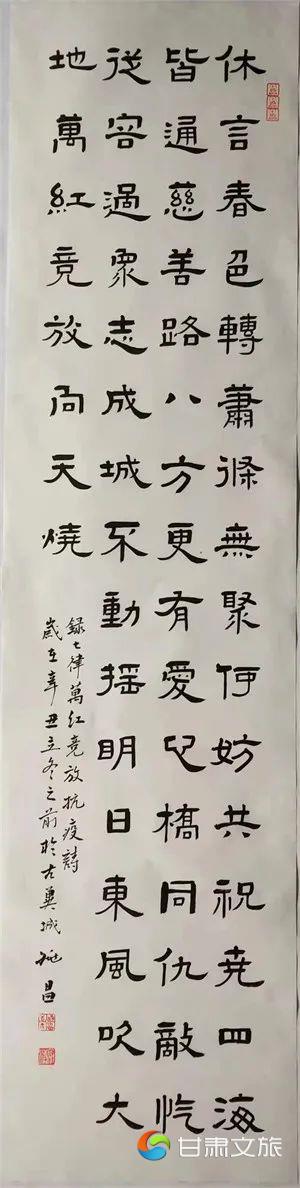 休言春色轉蕭條無聚何妨共祝堯四海
皆通慈善路八方更有愛心橋同仇敵忾
從容過眾志成城不動搖明日東風吹大
地萬紅竞放向天燒
錄七律萬紅竞放抗疫詩
歲在辛丑立冬之前於古冀城 昌
甘肃文旅